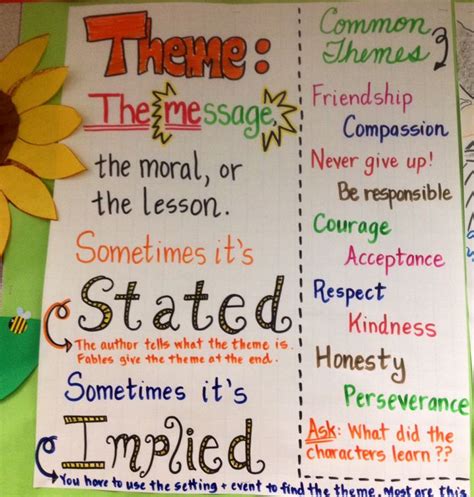 Theme:
The message,
the moral, or
the lesson.
Sometimes it's
Stated
The author tells what the theme is.
Fables give the theme at the end.
Sometimes it's
Implied
You have to use the setting + event to find the theme. Most are this
Common
Themes
Friendship
Compassion
Never give up!
Be responsible
Courage
Acceptance
Respect
Kindness
Honesty
Perseverance
Ask: What did the
characters learn ??